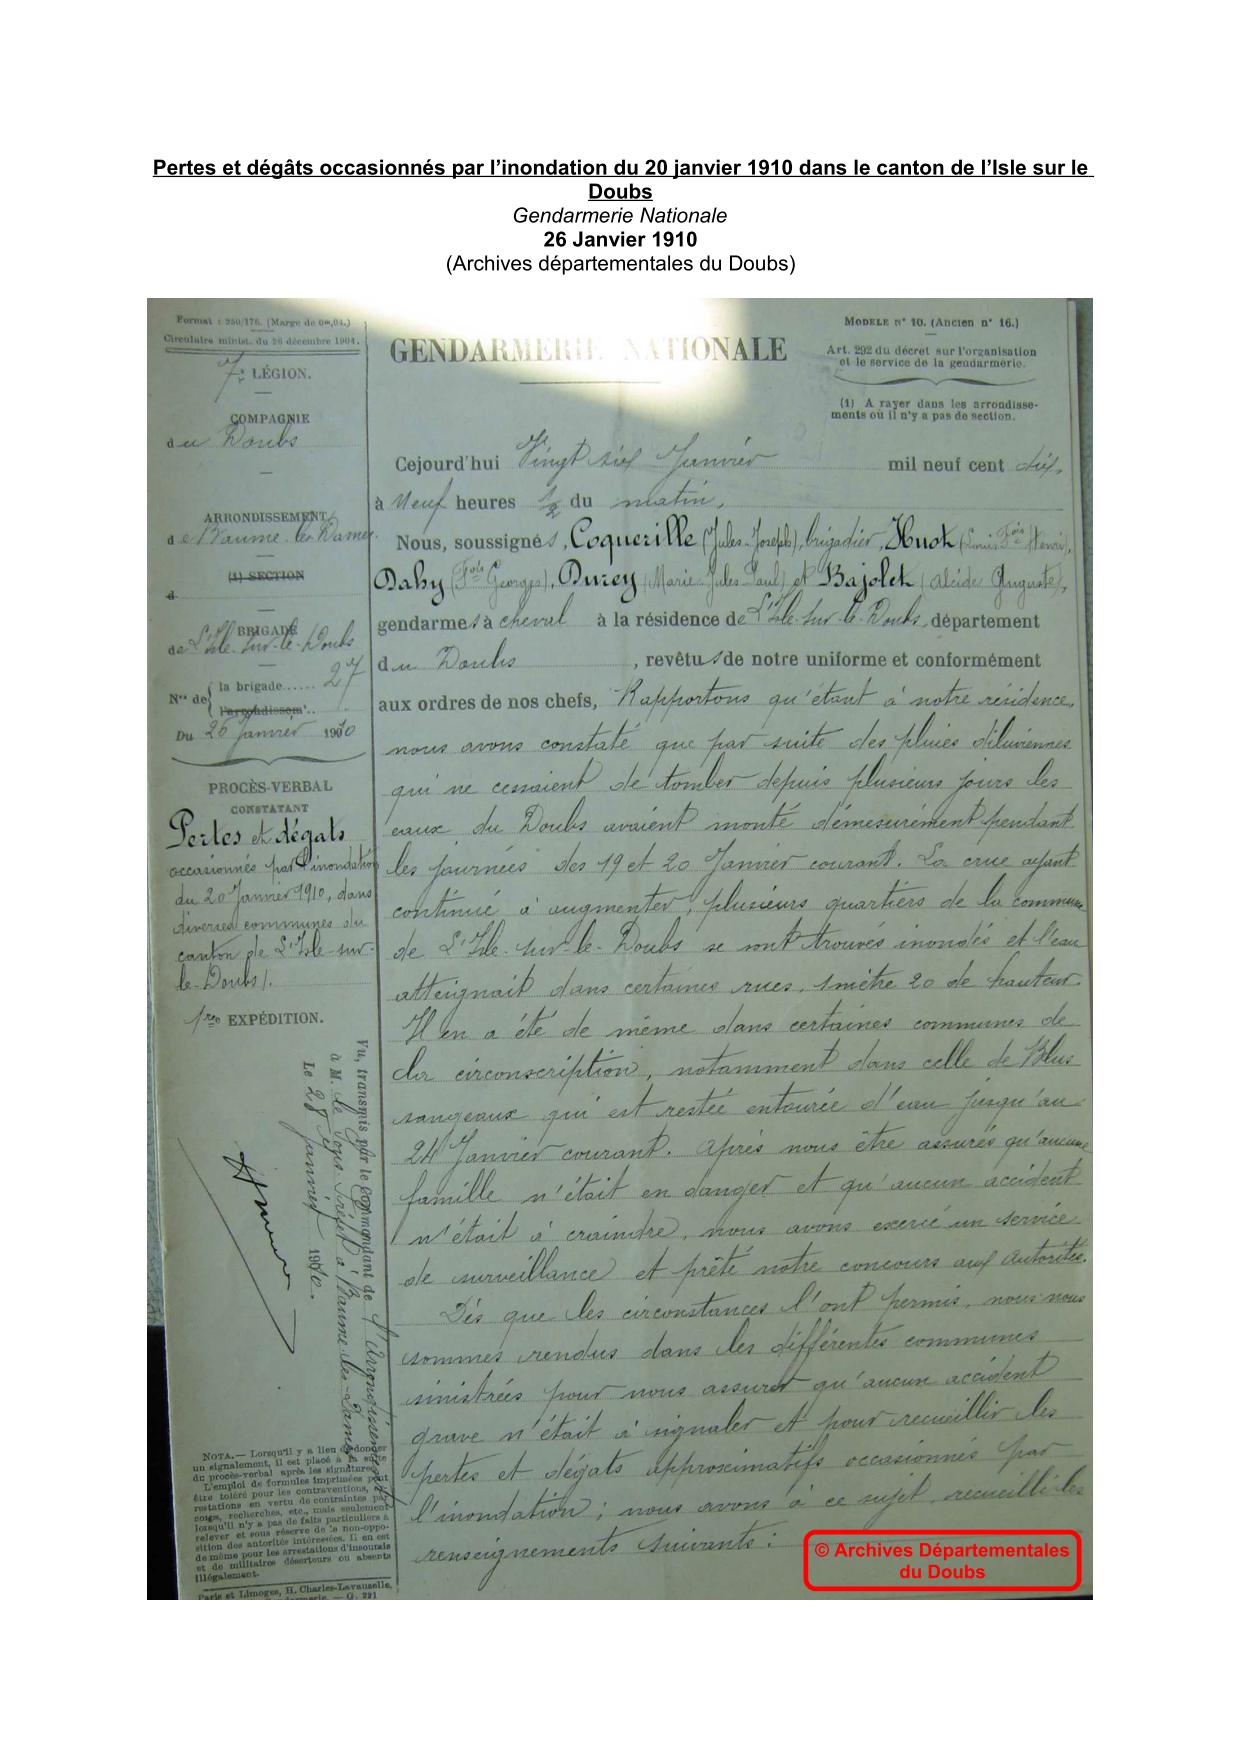 Pertes et dégâts occasionnés par l’inondation du 20 janvier 1910 dans le canton de l’Isle sur le
Doubs
Gendarmerie Nationale
26 Janvier 1910
(Archives départementales du Doubs)
Format : 250/176. (Marge de 0m,04.)
Circulaire minist. du 26 décembre 1904.
7e LÉGION.
COMPAGNIE
du Doubs
ARRONDISSEMENT
de Baume-les-Dames.
(1) SECTION
d
BRIGADE
de L'Isle-sur-le-Doubs
Nos de la brigade...... 27
l'arrondissemt..
Du 26 Janvier 1910
PROCÈS-VERBAL
CONSTATANT
Pertes et dégats
occasionnés par l'inondation
du 20 Janvier 1910, dans
diverses communes du
canton de L'Isle-sur-
le-Doubs/.
1re EXPÉDITION.
Vu, transmis par le Commandant de l'Arrondissement
à M. le Sous-Préfet à Baume-les-Dames
Le 28 Janvier 1910.
NOTA. — Lorsqu'il y a lieu de donner
un signalement, il est placé à la suite
du procès-verbal après les signatures.
L'emploi de formules imprimées peut
être toléré pour les contraventions,
restations en vertu de contraintes par
corps, recherches, etc., mais seulement
lorsqu'il n'y a pas de faits particuliers à
relever et sous réserve de la non-oppo-
sition des autorités intéressées. Il en est
de même pour les arrestations d'insoumis
et de militaires déserteurs ou absents
illégalement.
Paris et Limoges, H. Charles-Lavauzelle,
— G. 291
GENDARMERIE NATIONALE
MODÈLE N° 10. (Ancien n° 16.)
Art. 292 du décret sur l'organisation
et le service de la gendarmerie.
(1) A rayer dans les arrondisse-
ments où il n'y a pas de section.
Cejourd'hui Vingt six Janvier mil neuf cent dix,
à Neuf heures 1/2 du matin,
Nous, soussignés, Coquerille (Jules-Joseph), brigadier, Huot (Louis Fois Henri),
Dahy (Fois Georges), Durey (Marie-Jules Paul) et Bajolet (Alcide Auguste),
gendarmes à cheval à la résidence de L'Isle-sur-le-Doubs, département
du Doubs, revêtus de notre uniforme et conformément
aux ordres de nos chefs, Rapportons qu'étant à notre résidence,
nous avons constaté que par suite des pluies diluviennes
qui ne cessaient de tomber depuis plusieurs jours les
eaux du Doubs avaient monté démesurément pendant
les journées des 19 et 20 Janvier courant. La crue ayant
continué à augmenter, plusieurs quartiers de la commune
de L'Isle-sur-le-Doubs se sont trouvés inondés et l'eau
atteignait dans certaines rues, 1 mètre 20 de hauteur.
Il en a été de même dans certaines communes de
la circonscription, notamment dans celle de Blus
sangeaux qui est restée entourée d'eau jusqu'au
24 Janvier courant. Après nous être assurés qu'aucune
famille n'était en danger et qu'aucun accident
n'était à craindre, nous avons exercé un service
de surveillance et prêté notre concours aux autorités.
Dés que les circonstances l'ont permis, nous nous
sommes rendus dans les différentes communes
sinistrées pour nous assurer qu'aucun accident
grave n'était à signaler et pour recueillir les
pertes et dégats approximatifs occasionnés par
l'inondation ; nous avons à ce sujet, recueilli les
renseignements suivants :
© Archives Départementales
du Doubs